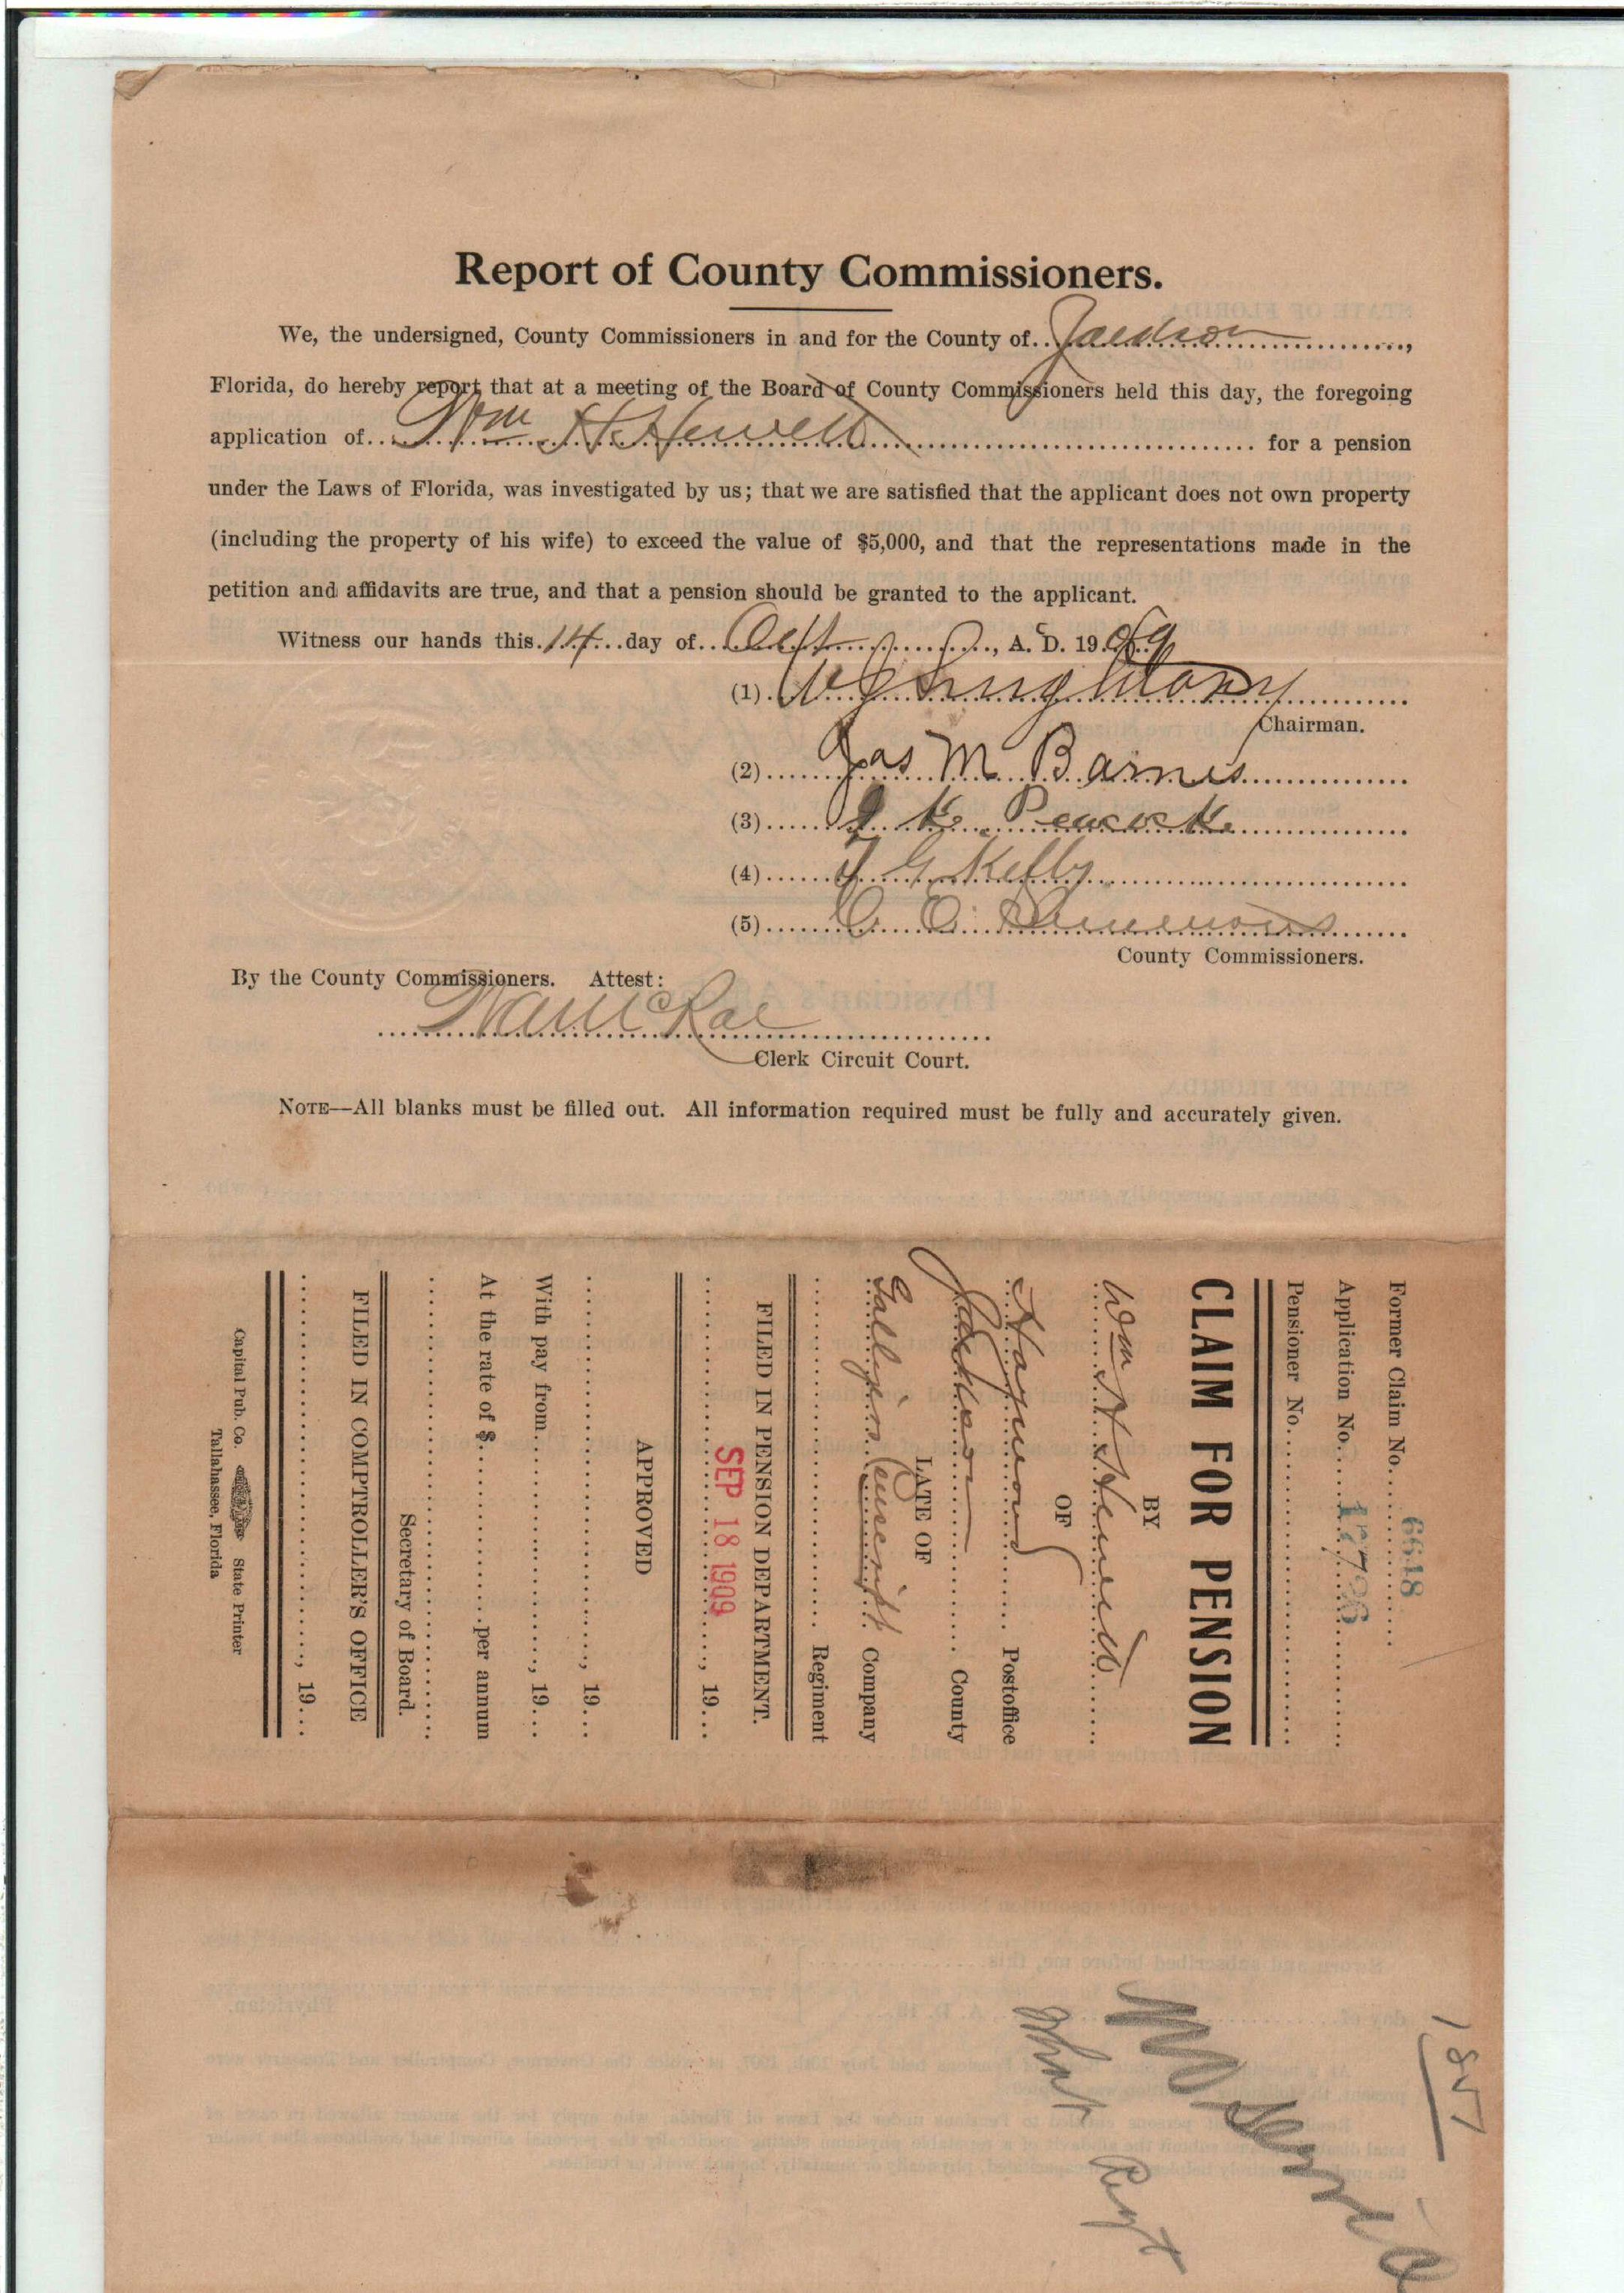 Report of County Commissioners.
We, the undersigned, County Commissioners in and for the County of Jackson,
Florida, do hereby report that at a meeting of the Board of County Commissioners held this day, the foregoing
application of Wm H Hewett for a pension
under the Laws of Florida, was investigated by us; that we are satisfied that the applicant does not own property
(including the property of his wife) to exceed the value of $5,000, and that the representations made in the
petition and affidavits are true, and that a pension should be granted to the applicant.
Witness our hands this 14 day of , A. D. 1909
(1)
Chairman.
(2) Jas M Barnes
(3) J K Peacock
(4) J G Kelly
(5) C C
County Commissioners.
By the County Commissioners. Attest:
McRae
Clerk Circuit Court.
NOTE—All blanks must be filled out. All information required must be fully and accurately given.
Former Claim No. 6618
Application No. 17736
Pensioner No.
CLAIM FOR PENSION
BY
Wm H Hewett
OF
Postoffice
Jackson County
LATE OF
Company
Regiment
FILED IN PENSION DEPARTMENT.
SEP 18 1909 , 19
APPROVED
, 19
With pay from , 19
At the rate of $ per annum
Secretary of Board.
FILED IN COMPTROLLER'S OFFICE
, 19
Capital Pub. Co. State Printer
Tallahassee, Florida
No service
what Regt